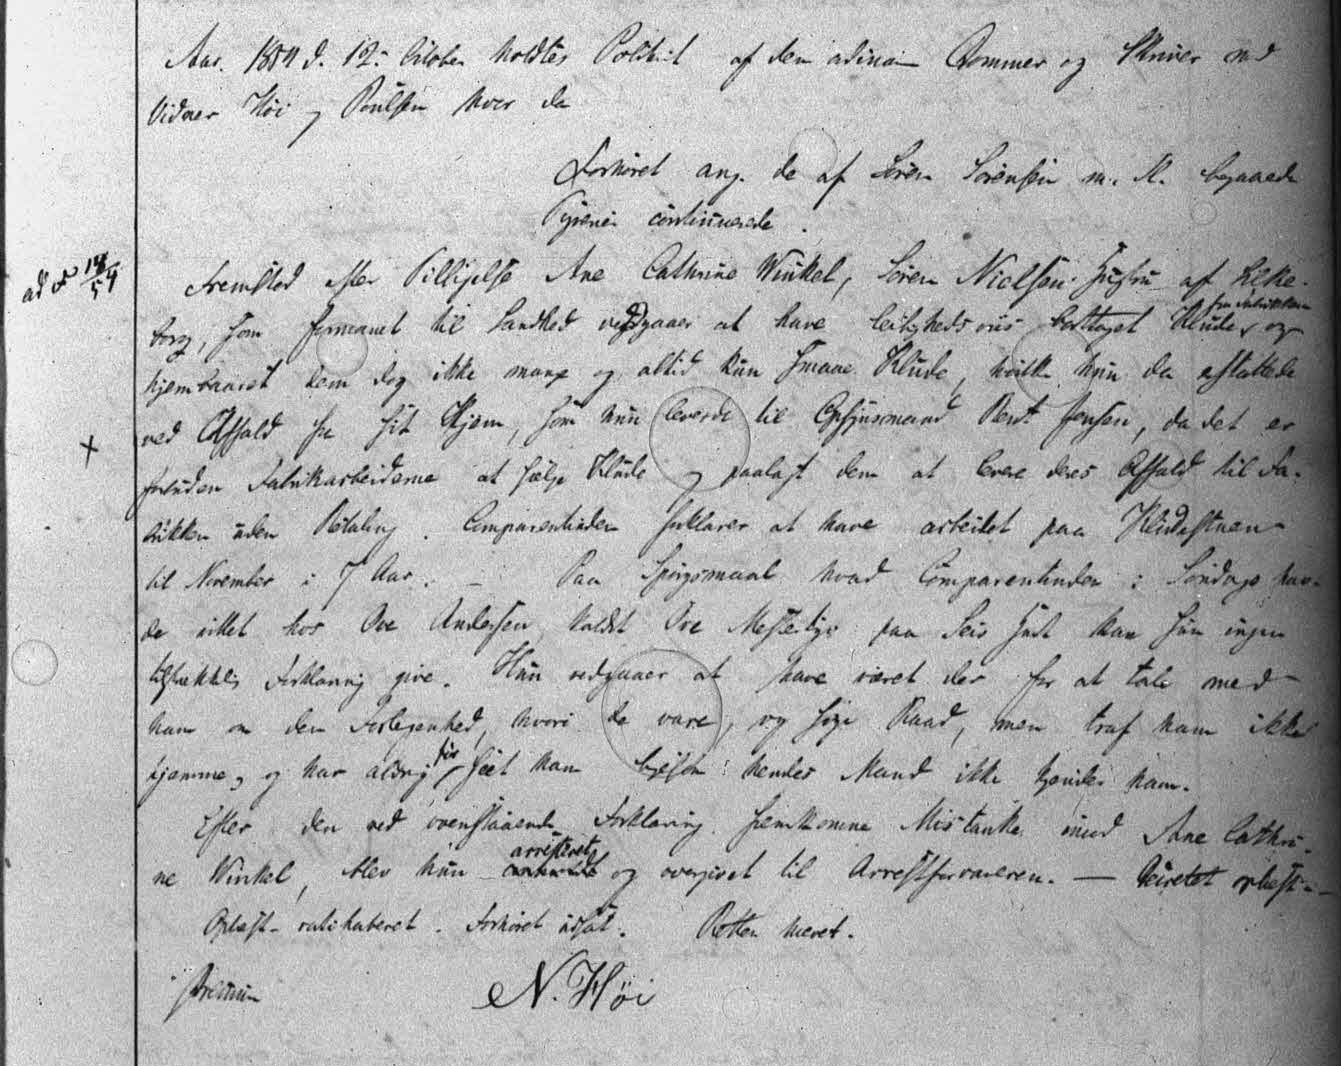 Aar 1854 d. 12 October holdtes Politiret af den ordinære Dommer og Skriver med
Vidner Høi og Poulsen hvor da
Forhøret ang. de af Søren Sørensen m. Fl. begaaede
Tyverier continuerede.
ad
Fremstod efter Tilsigelse Ane Cathrine Winkel, Søren Nielsens Hustru af Silke-
fra Fabrikken
borg, som formanet til Sandhed vedgaaer at have leilighedsviis borttaget Klude og
hjembaaret dem dog ikke mange og altid kun smaae Klude, hvilke hun da erstattede
ved Affald fra sit Hjem, som hun leverede til Opsynsmand Bent Jensen, da det er
forbuden Fabrikarbeiderne at sælge Klude og paalagt dem at levere deres Affald til Fa-
brikken uden Betaling. Comparentinden forklarer at have arbeidet paa Kludestuen
til November i 7 Aar. – Paa Spørgsmaal hvad Comparentinden i Søndags hav-
de villet hos Ove Andersen kaldet Ove Mester paa Seis kan hun ingen
tilstrækkelig Forklaring give. Hun vedgaaer at have været der for at tale med
ham om den Forlegenhed, hvori de vare, og søge Raad, men traf ham ikke
hjemme, og har aldrig før seet ham ligesom hendes Mand ikke kjender ham.
Efter den ved ovenstaaende Forklaring fremkomne Mistanke imod Ane Cathri-
arresteret
ne Winkel, blev hun og overgivet til Arrestforvareren. –
Oplæst – ratihaberet. Forhøret udsat. Retten hævet.
N. Høi